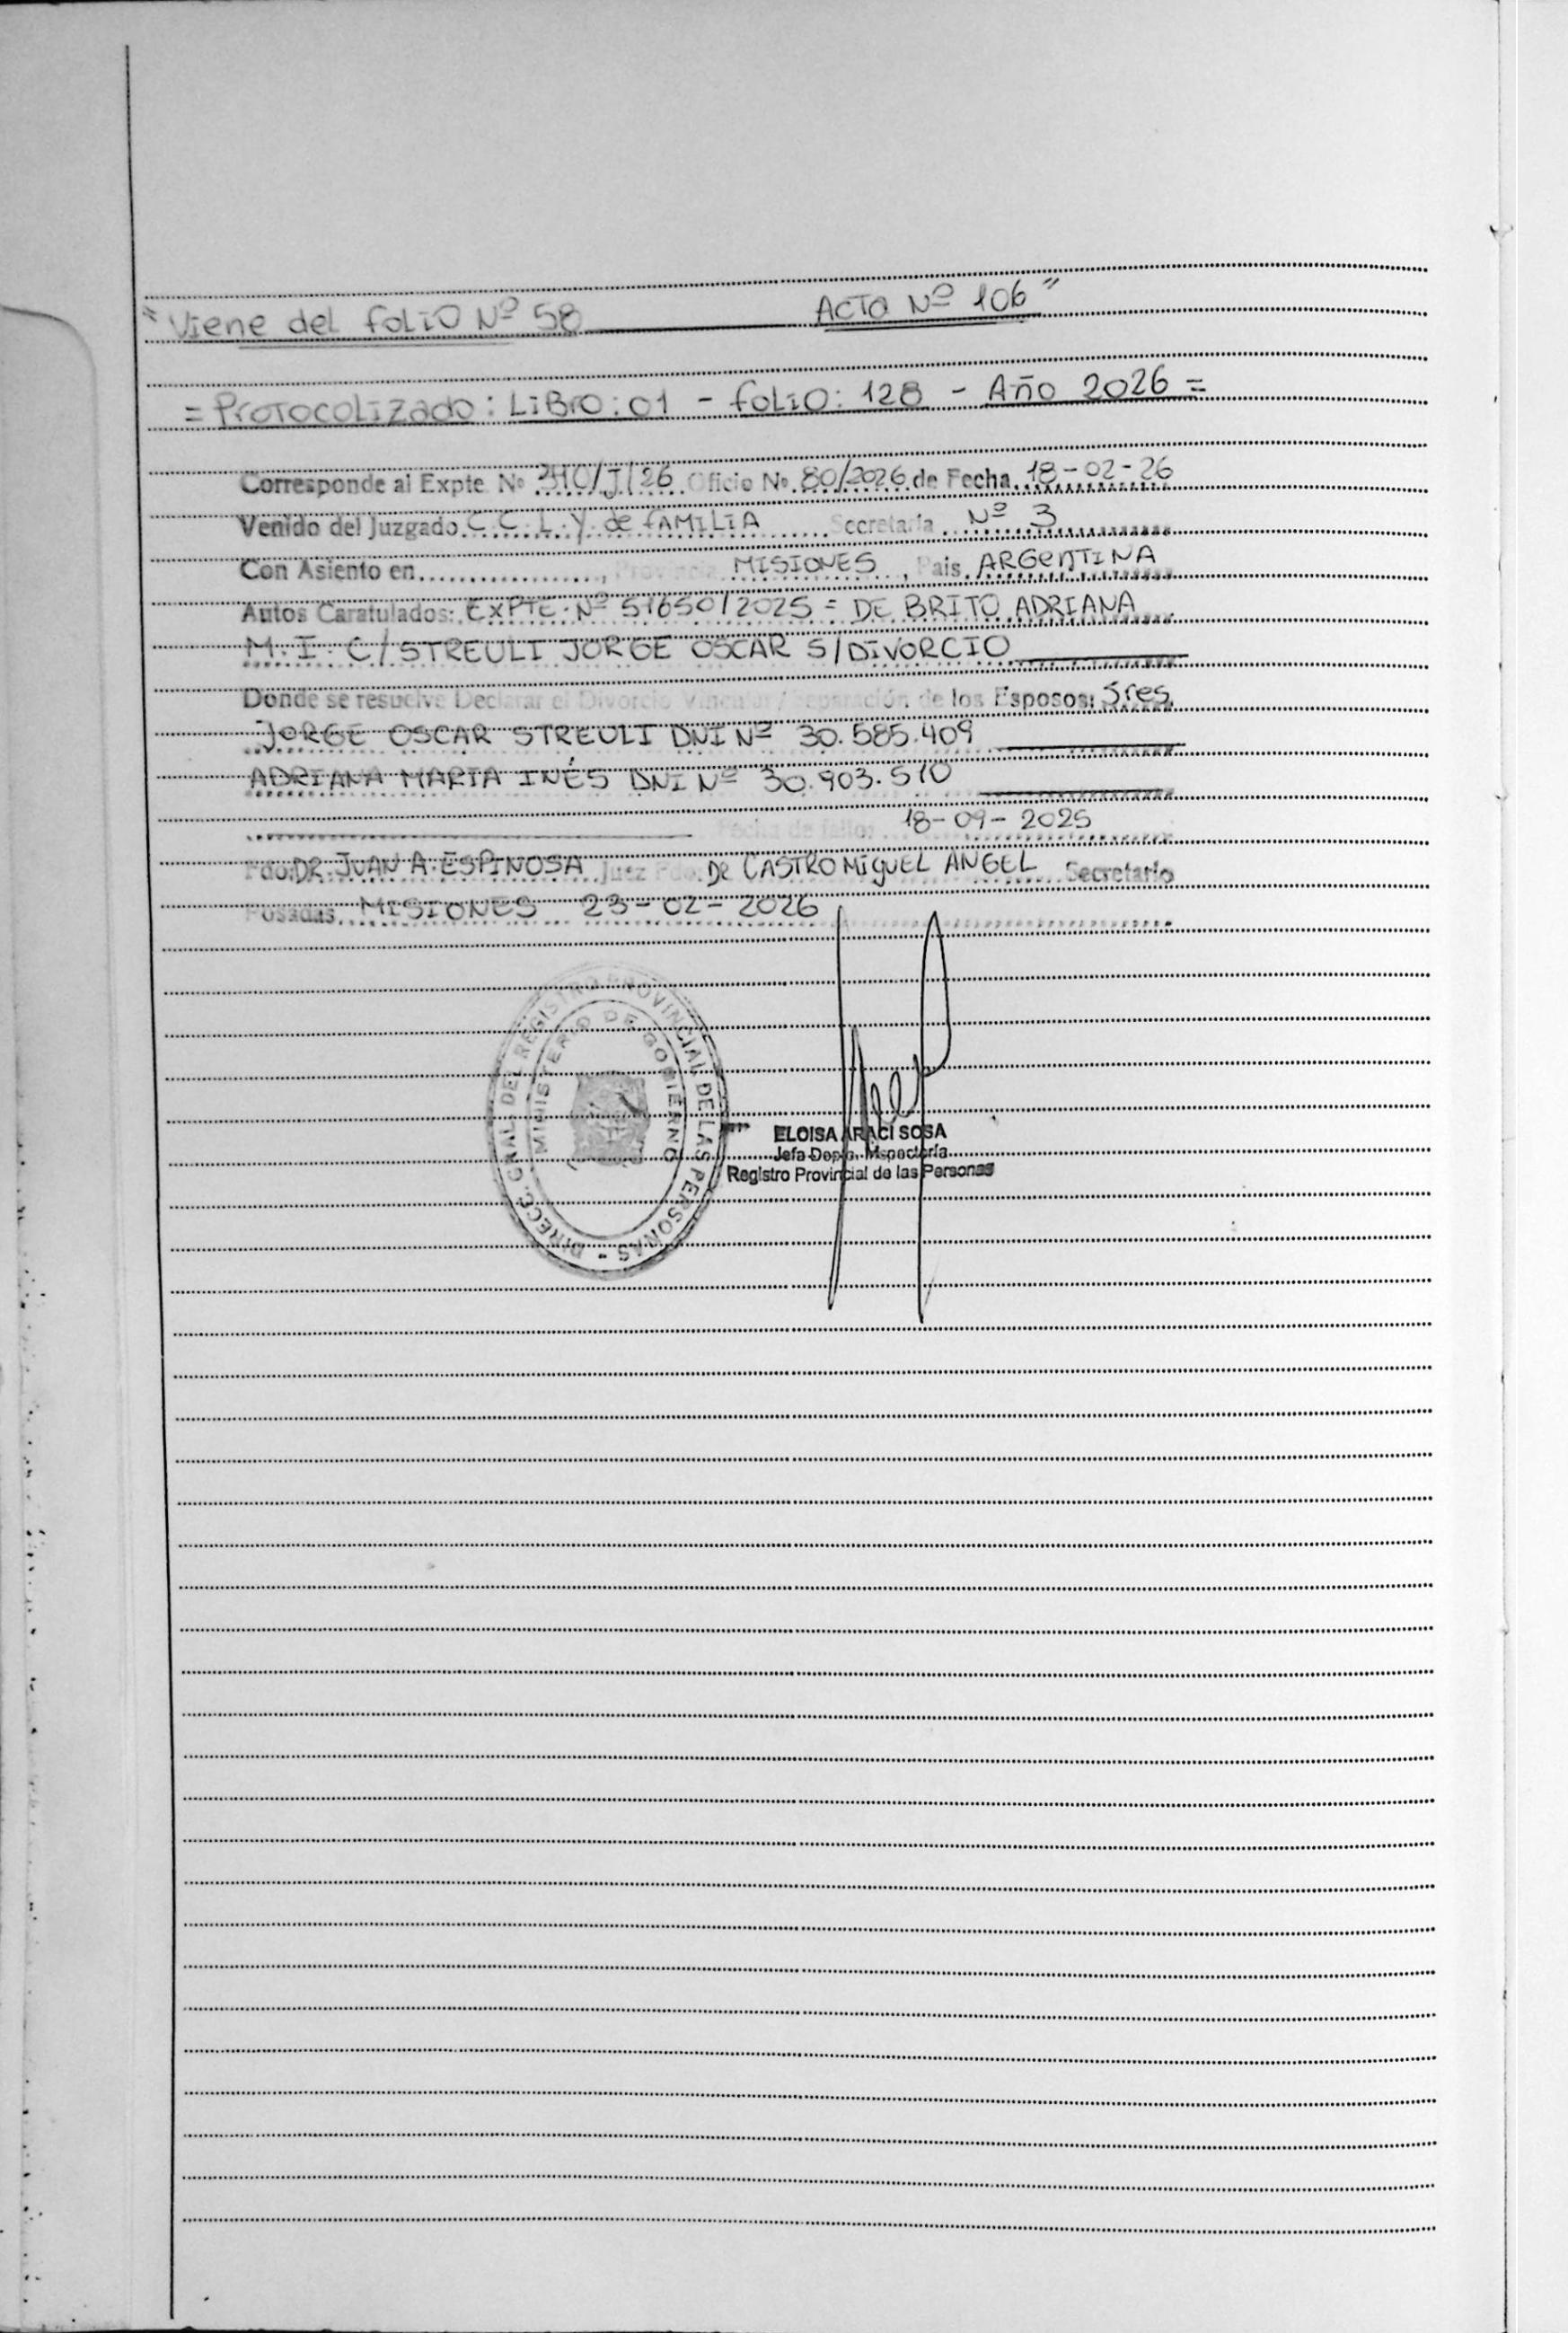 "Viene del folio Nº 58 Acta Nº 106"
= Protocolizado: Libro: 01 - folio: 128 - Año 2026 =
Corresponde al Expte. Nº /J/26 Oficio Nº 80/2026 de Fecha 18-02-26
Venido del Juzgado C. C. L. y. de FAMILIA Secretaría Nº 3
Con Asiento en , Provincia MISIONES, Pais ARGENTINA
Autos Caratulados: EXPTE. Nº 51650/2025 = DE BRITO ADRIANA
M. I. C/ STREULI JORGE OSCAR S/DIVORCIO
Donde se resuelve Declarar el Divorcio Vincular / Separación de los Esposos: Sres
JORGE OSCAR STREULI DNI Nº 30.585.409
ADRIANA MARIA INÉS DNI Nº 30.903.510
Fecha de fallo: 18-09-2025
Fdo: DR. JUAN A. ESPINOSA Juez Fdo: DR CASTRO MIGUEL ANGEL Secretario
Posadas, MISIONES 23-02-2026
DIRECC. GRAL. DEL REGISTRO PROVINCIAL DE LAS PERSONAS -
MINISTERIO DE GOBIERNO
ELOISA ARACI SOSA
Jefa Depto. Inspectoría
Registro Provincial de las Personas